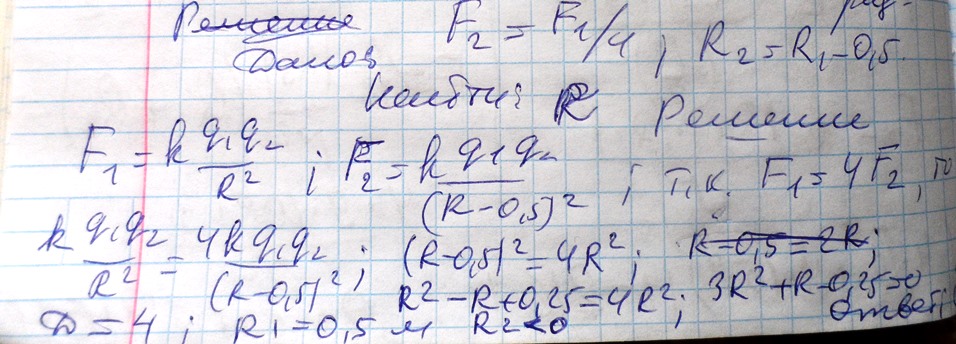 Решение F₂ = F₁/4 ; R₂ = R₁ - 0,5.
Дано:
Найти: R Решение
F₁ = k q₁q₂/R² ; F₂ = k q₁q₂/(R-0,5)² ; т.к. F₁ = 4F₂, то
k q₁q₂/R² = 4k q₁q₂/(R-0,5)² ; (R-0,5)² = 4R² ; R-0,5=2R ;
R² - R + 0,25 = 4R² ; 3R² + R - 0,25 = 0
D = 4 ; R₁ = 0,5 м R₂ < 0 Ответ: